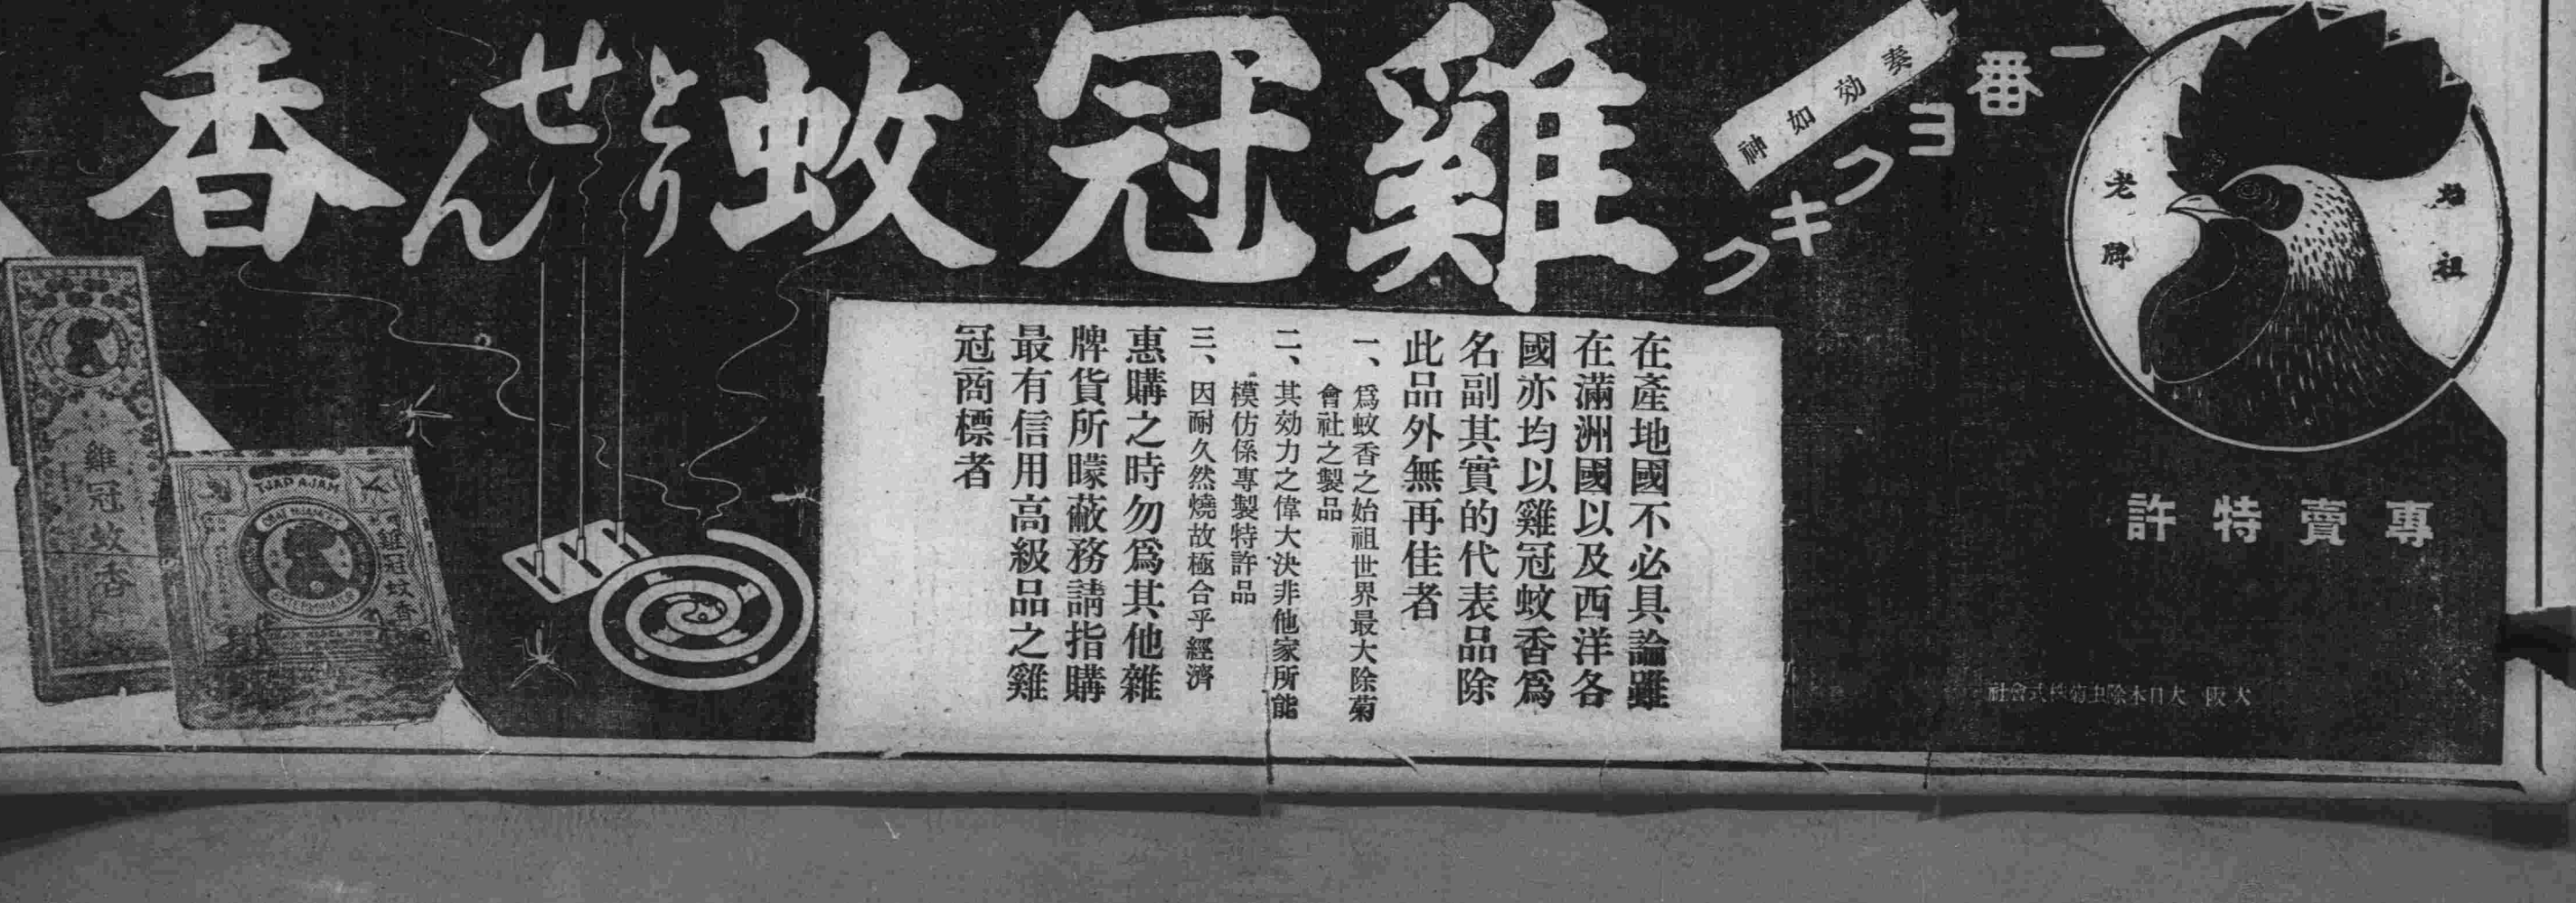 始祖
老牌
專賣特許
大阪 大日本除虫菊株式會社
一番ヨクキク
奏効如神
雞冠蚊とりせん香
在產地國不必具論雖
在滿洲國以及西洋各
國亦均以雞冠蚊香爲
名副其實的代表品除
此品外無再佳者
一、爲蚊香之始祖世界最大除菊
會社之製品
二、其効力之偉大決非他家所能
模仿係專製特許品
三、因耐久然燒故極合乎經濟
惠購之時勿爲其他雜
牌貨所矇蔽務請指購
最有信用高級品之雞
冠商標者
雞冠蚊香
TJAP AJAM
雞冠蚊香